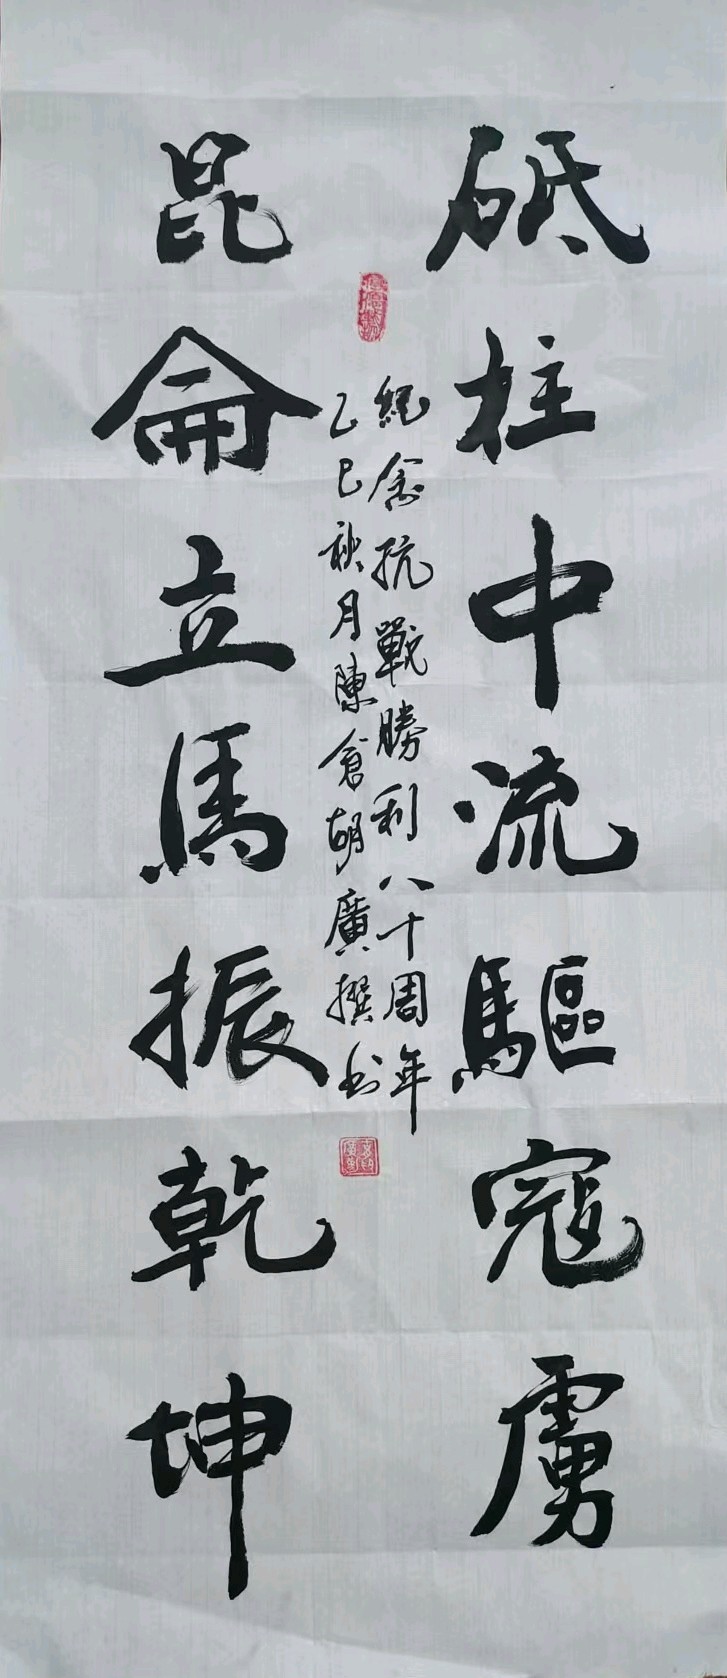 砥柱中流驅寇虜
紀念抗戰勝利八十周年
乙巳秋月陳倉胡廣撰书
昆侖立馬振乾坤